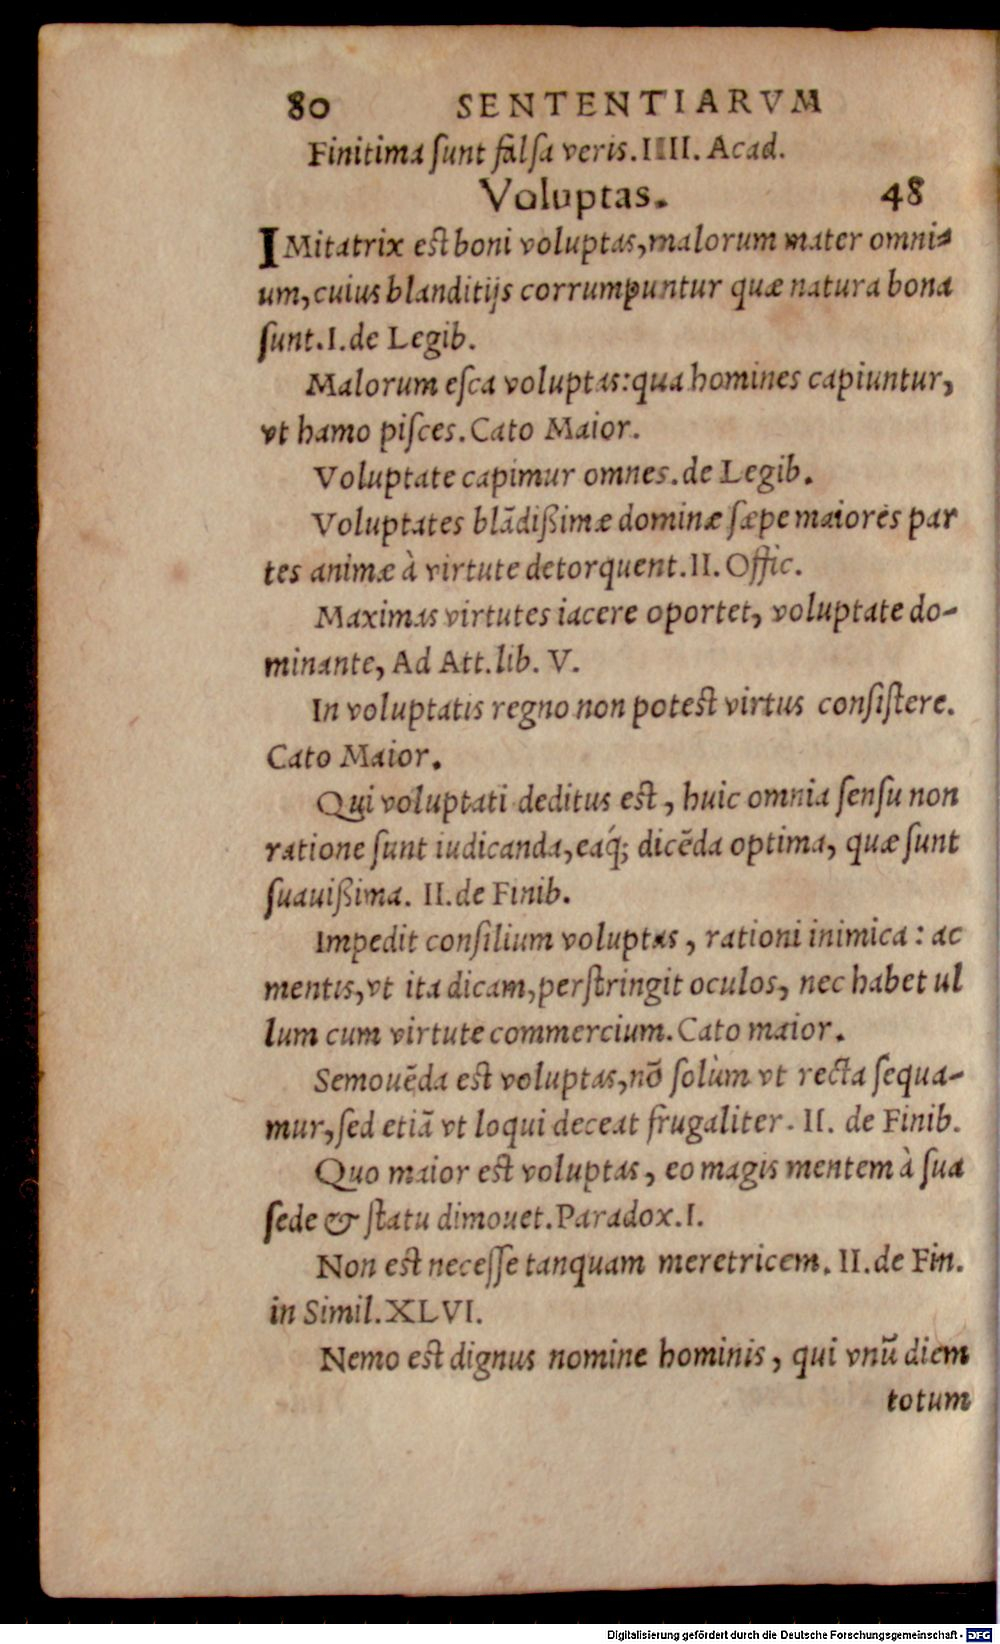 80 SENTENTIARVM
Finitima ſunt falſa veris. IIII. Acad.
Voluptas. 48
IMitatrix est boni voluptas, malorum mater omni-
um, cuius blanditijs corrumpuntur quæ natura bona
ſunt. I. de Legib.
Malorum eſca voluptas: qua homines capiuntur,
vt hamo piſces. Cato Maior.
Voluptate capimur omnes. de Legib.
Voluptates blãdißimæ dominæ ſæpe maiores par
tes animæ à virtute detorquent. II. Offic.
Maximas virtutes iacere oportet, voluptate do-
minante, Ad Att. lib. V.
In voluptatis regno non potest virtus conſiſtere.
Cato Maior.
Qui voluptati deditus est, huic omnia ſenſu non
ratione ſunt iudicanda, eaq́; dicẽda optima, quæ ſunt
ſuauißima. II. de Finib.
Impedit conſilium voluptas, rationi inimica: ac
mentis, vt ita dicam, perſtringit oculos, nec habet ul
lum cum virtute commercium. Cato maior.
Semouẽda est voluptas, nõ ſolùm vt recta ſequa-
mur, ſed etiã vt loqui deceat frugaliter. II. de Finib.
Quo maior est voluptas, eo magis mentem à ſua
ſede & ſtatu dimouet. Paradox. I.
Non est neceſſe tanquam meretricem. II. de Fin.
in Simil. XLVI.
Nemo est dignus nomine hominis, qui vnũ diem
totum
Digitalisierung gefördert durch die Deutsche Forschungsgemeinschaft - DFG